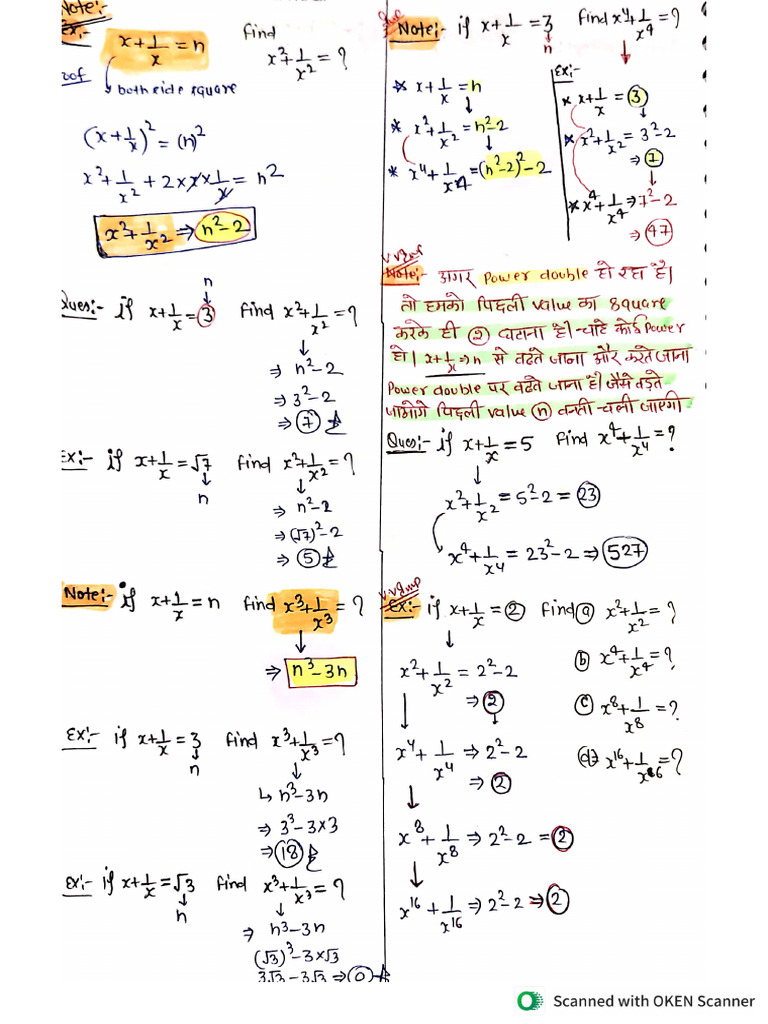 Note:-
Ex:-
x+1/x = n
find
x²+1/x² = ?
↳ both side square
(x+1/x)² = (n)²
x²+1/x² + 2×x×1/x = n²
x²+1/x² ⇒ n²-2
n
Ques:- if x+1/x = 3 find x²+1/x² = ?
⇒ n²-2
⇒ 3²-2
⇒ 7
Ex:- if x+1/x = √7 find x²+1/x² = ?
n
⇒ n²-2
⇒ (√7)²-2
⇒ 5
Note:- if x+1/x = n find x³+1/x³ = ?
⇒ n³-3n
Ex:- if x+1/x = 3 find x³+1/x³ = ?
n
↳ n³-3n
⇒ 3³-3×3
⇒ 18
Ex:- if x+1/x = √3 find x³+1/x³ = ?
n
⇒ n³-3n
(√3)³-3×√3
3√3-3√3 ⇒ 0
Note:- if x+1/x = 3 find x⁴+1/x⁴ = ?
n
* x+1/x = n
* x²+1/x² = n²-2
* x⁴+1/x⁴ = (n²-2)²-2
Ex:-
* x+1/x = 3
* x²+1/x² = 3²-2
⇒ 7
* x⁴+1/x⁴ ⇒ 7²-2
⇒ 47
Note:- अगर Power double हो रहा है।
तो हमको पिछली value का square
करके ही 2 घटाना है। चाहे कोई Power
हो। x+1/x ⇒ n से बढते जाना और करते जाना
Power double पर बढते जाना है। जैसे बढ़ते
जाओगे पिछली value n बनती चली जाएगी
Ques:- if x+1/x = 5 find x⁴+1/x⁴ = ?
x²+1/x² = 5²-2 = 23
x⁴+1/x⁴ = 23²-2 ⇒ 527
VVimp
Ex:- if x+1/x = 2 find a x²+1/x² = ?
b x⁴+1/x⁴ = ?
c x⁸+1/x⁸ = ?
(d) x¹⁶+1/x¹⁶ = ?
x²+1/x² = 2²-2
⇒ 2
x⁴+1/x⁴ ⇒ 2²-2
⇒ 2
x⁸+1/x⁸ ⇒ 2²-2 = 2
x¹⁶+1/x¹⁶ ⇒ 2²-2 ⇒ 2
Scanned with OKEN Scanner